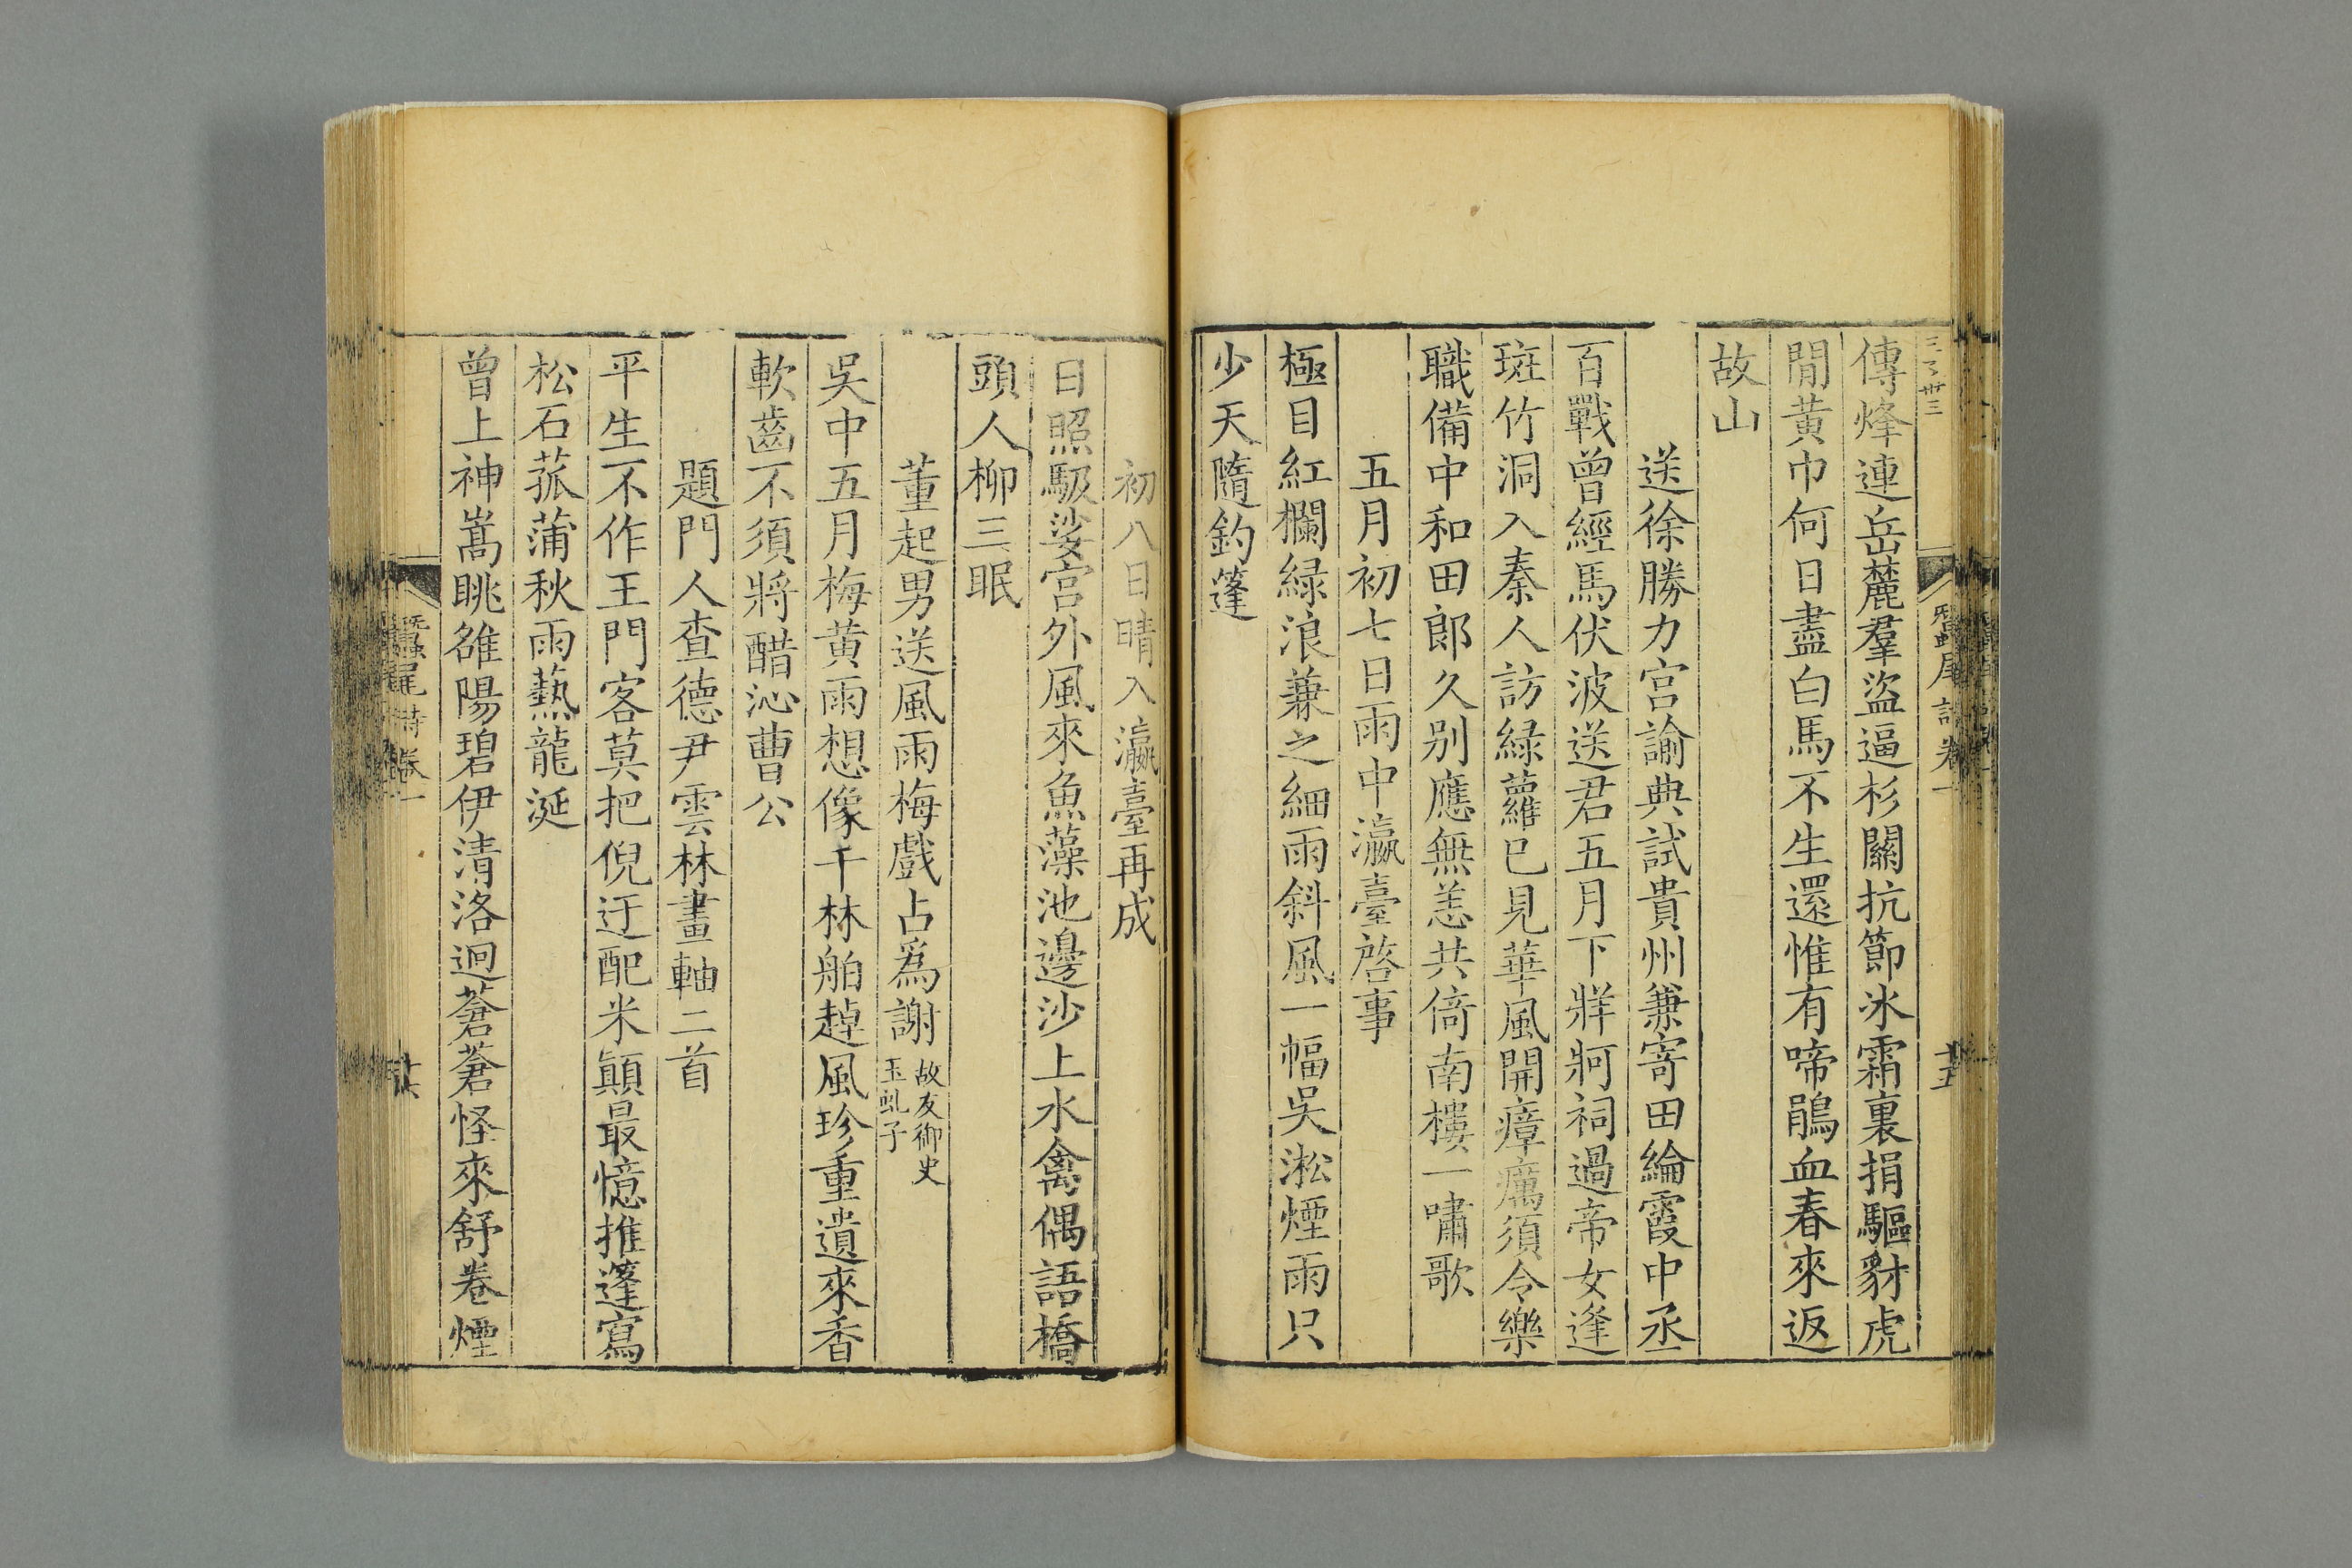 傳烽連岳麓羣盜逼杉關抗節冰霜裏捐驅豺虎
閒黄巾何日盡白馬不生還惟有啼鵑血春來返
故山
送徐勝力宮諭典試貴州兼寄田綸霞中丞
百戰曾經馬伏波送君五月下牂牁祠過帝女逢
斑竹洞入秦人訪緑蘿已見華風開瘴癘須令樂
職備中和田郎久别應無恙共倚南樓一嘯歌
五月初七日雨中瀛臺啓事
極目紅欄緑浪兼之細雨斜風一幅吳淞煙雨只
少天隨釣篷
初八日晴入瀛臺再成
日照馺娑宮外風來魚藻池邊沙上水禽偶語橋
頭人柳三眠
董起男送風雨梅戲占爲謝
故友御史
玉虬子
吳中五月梅黄雨想像千林舶趠風珍重遺來香
軟齒不須將醋沁曹公
題門人查德尹雲林畫軸二首
平生不作王門客莫把倪迂配米顛最憶推蓬寫
松石菰蒲秋雨爇龍涎
曾上神嵩眺雒陽碧伊清洛迥蒼蒼怪來舒卷煙
蠶尾詩卷一
十六